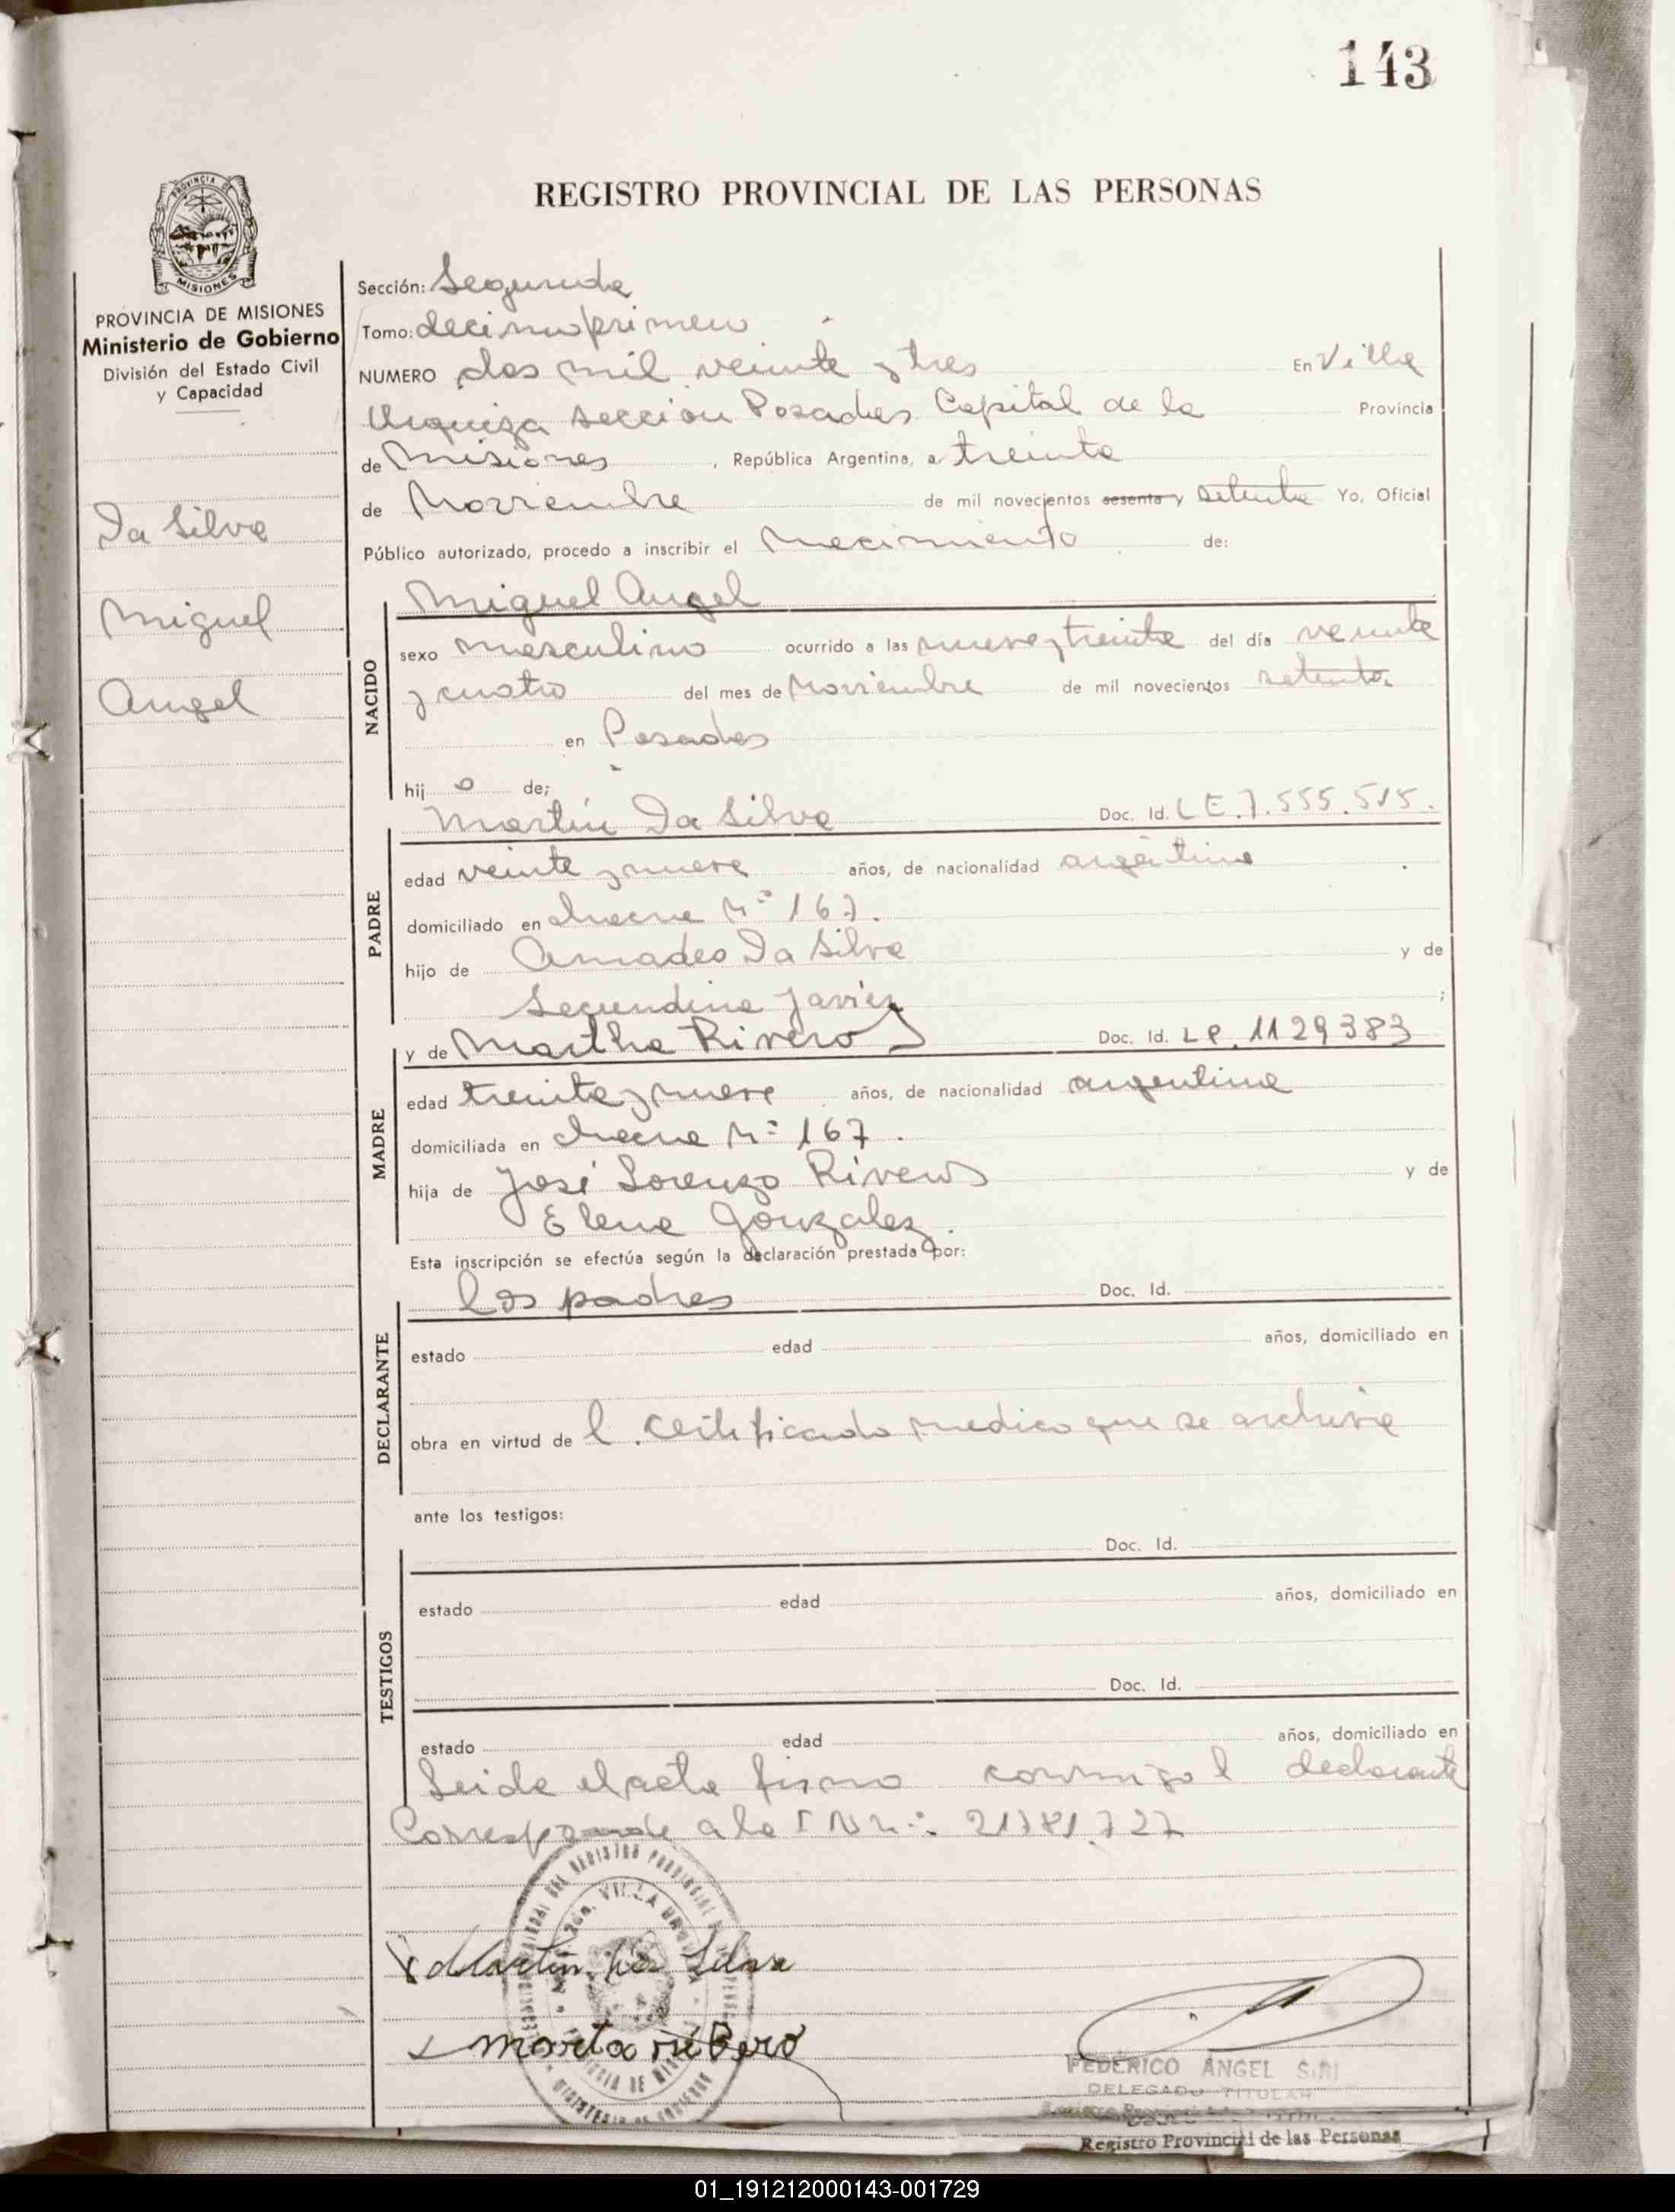 143
REGISTRO PROVINCIAL DE LAS PERSONAS
PROVINCIA DE
MISIONES
PROVINCIA DE MISIONES
Ministerio de Gobierno
División del Estado Civil
y Capacidad
Da Silva
Miguel
Angel
Sección: Segunda
Tomo: decimo primero
NUMERO dos mil veinte y tres En Villa
Urquiza seccion Posadas Capital de la Provincia
de Misiones, República Argentina, a treinta
de Noviembre de mil novecientos sesenta y setenta Yo, Oficial
Público autorizado, procedo a inscribir el nacimiento de:
NACIDO
Miguel Angel
sexo masculino ocurrido a las nueve y treinta del día veinte
y cuatro del mes de Noviembre de mil novecientos setenta
en Posadas
hijo de;
PADRE
Martín Da Silva Doc. Id. LE. 7.555.515.
edad veinte y nueve años, de nacionalidad argentina
domiciliado en Nº 167.
hijo de Amadeo Da Silva y de
Secundina Javier ;
MADRE
y de Martha Rivero Doc. Id. 1129383
edad treinta y nueve años, de nacionalidad argentina
domiciliada en Nº 167.
hija de José Lorenzo Rivero y de
Elena Gonzalez.
Esta inscripción se efectúa según la declaración prestada por:
DECLARANTE
los padres Doc. Id.
estado edad años, domiciliado en
obra en virtud de l certificado medico que se archiva
ante los testigos:
TESTIGOS
Doc. Id.
estado edad años, domiciliado en
Doc. Id.
estado edad años, domiciliado en
Leida el acta firma conmigo l declarante
Corresponde a la 21781.727
Martin Da Silva
marta riBero
FEDERICO ÁNGEL
DELEGADO TITULAR
Registro Provincial de las Personas
01_191212000143-001729